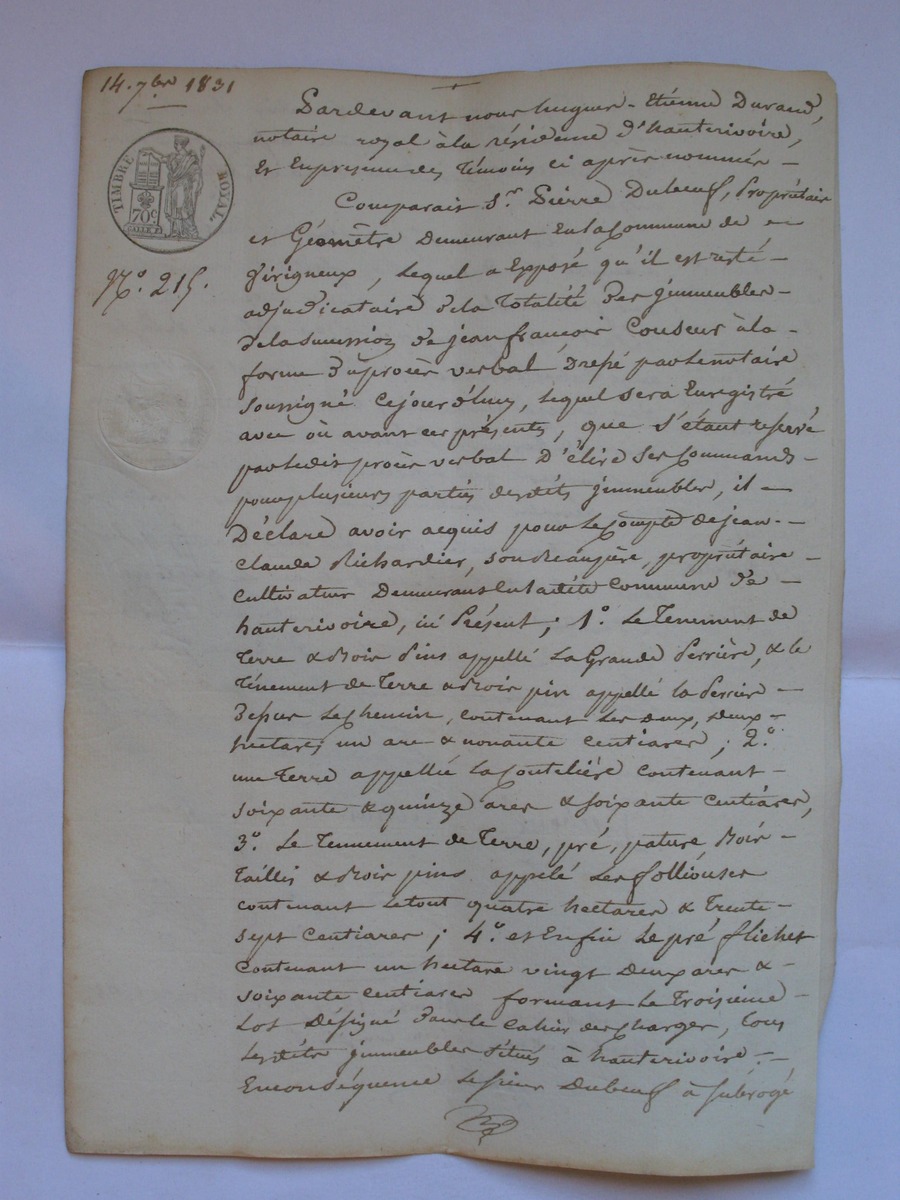 14. 7bre 1831
TIMBRE ROYAL
70c
Nº. 215.
Pardevant nous hugues-Etienne Durand,
notaire royal à la résidence d'hauterivoire,
Et En presence des Témoins ci après nommés -
Comparait Sr. Pierre Dubeuf, Propriétaire
et Géomètre Demeurant En la Commune de
Virigneux, Lequel a Exposé qu'il est resté
adjudicataire de la Totalité des Jmmeubles
de la succession de jean françois Couseur à la
forme d'un procès verbal Drepé par le notaire
soussigné Cejourd'huy, Lequel sera Enregistré
avec où avant ces présents, que S'étant reservé
par ledit procès verbal D'élire Ses Commands
pour plusieurs parties desdits Jmmeubles, il
Déclare avoir acquis pour le Compte de jean
Claude Richardier, son Beaupère, propriétaire
Cultivateur Demeurant En ladite Commune de
hauterivoire, ici Présent; 1º. Le Tenement de
Terre & Bois Pins appellé La Grande Perrière, & le
Ténement de Terre & Bois pin appellé la Perrière
Dessus Le Chemin, Contenant Les deux, deux
hectares un are & nonante Centiares; 2º.
une Terre appellée La Contelière Contenant
Soixante & quinze ares & soixante Centiares,
3º. Le Tennement de Terre, pré, pature, Bois
Taillis & Bois pins appelé Les folliouses
Contenant Le tout quatre hectares & Trente
Sept Centiares; 4º. et Enfin Le pré flichet
Contenant un hectare vingt deux ares &
soixante Centiares formant Le Troisième
Lot Désigné Dans le Cahier des Charges, Tous
Lesdits Jmmeubles Situés à hauterivoire.
En conséquence Le sieur Dubeuf à Subrogé